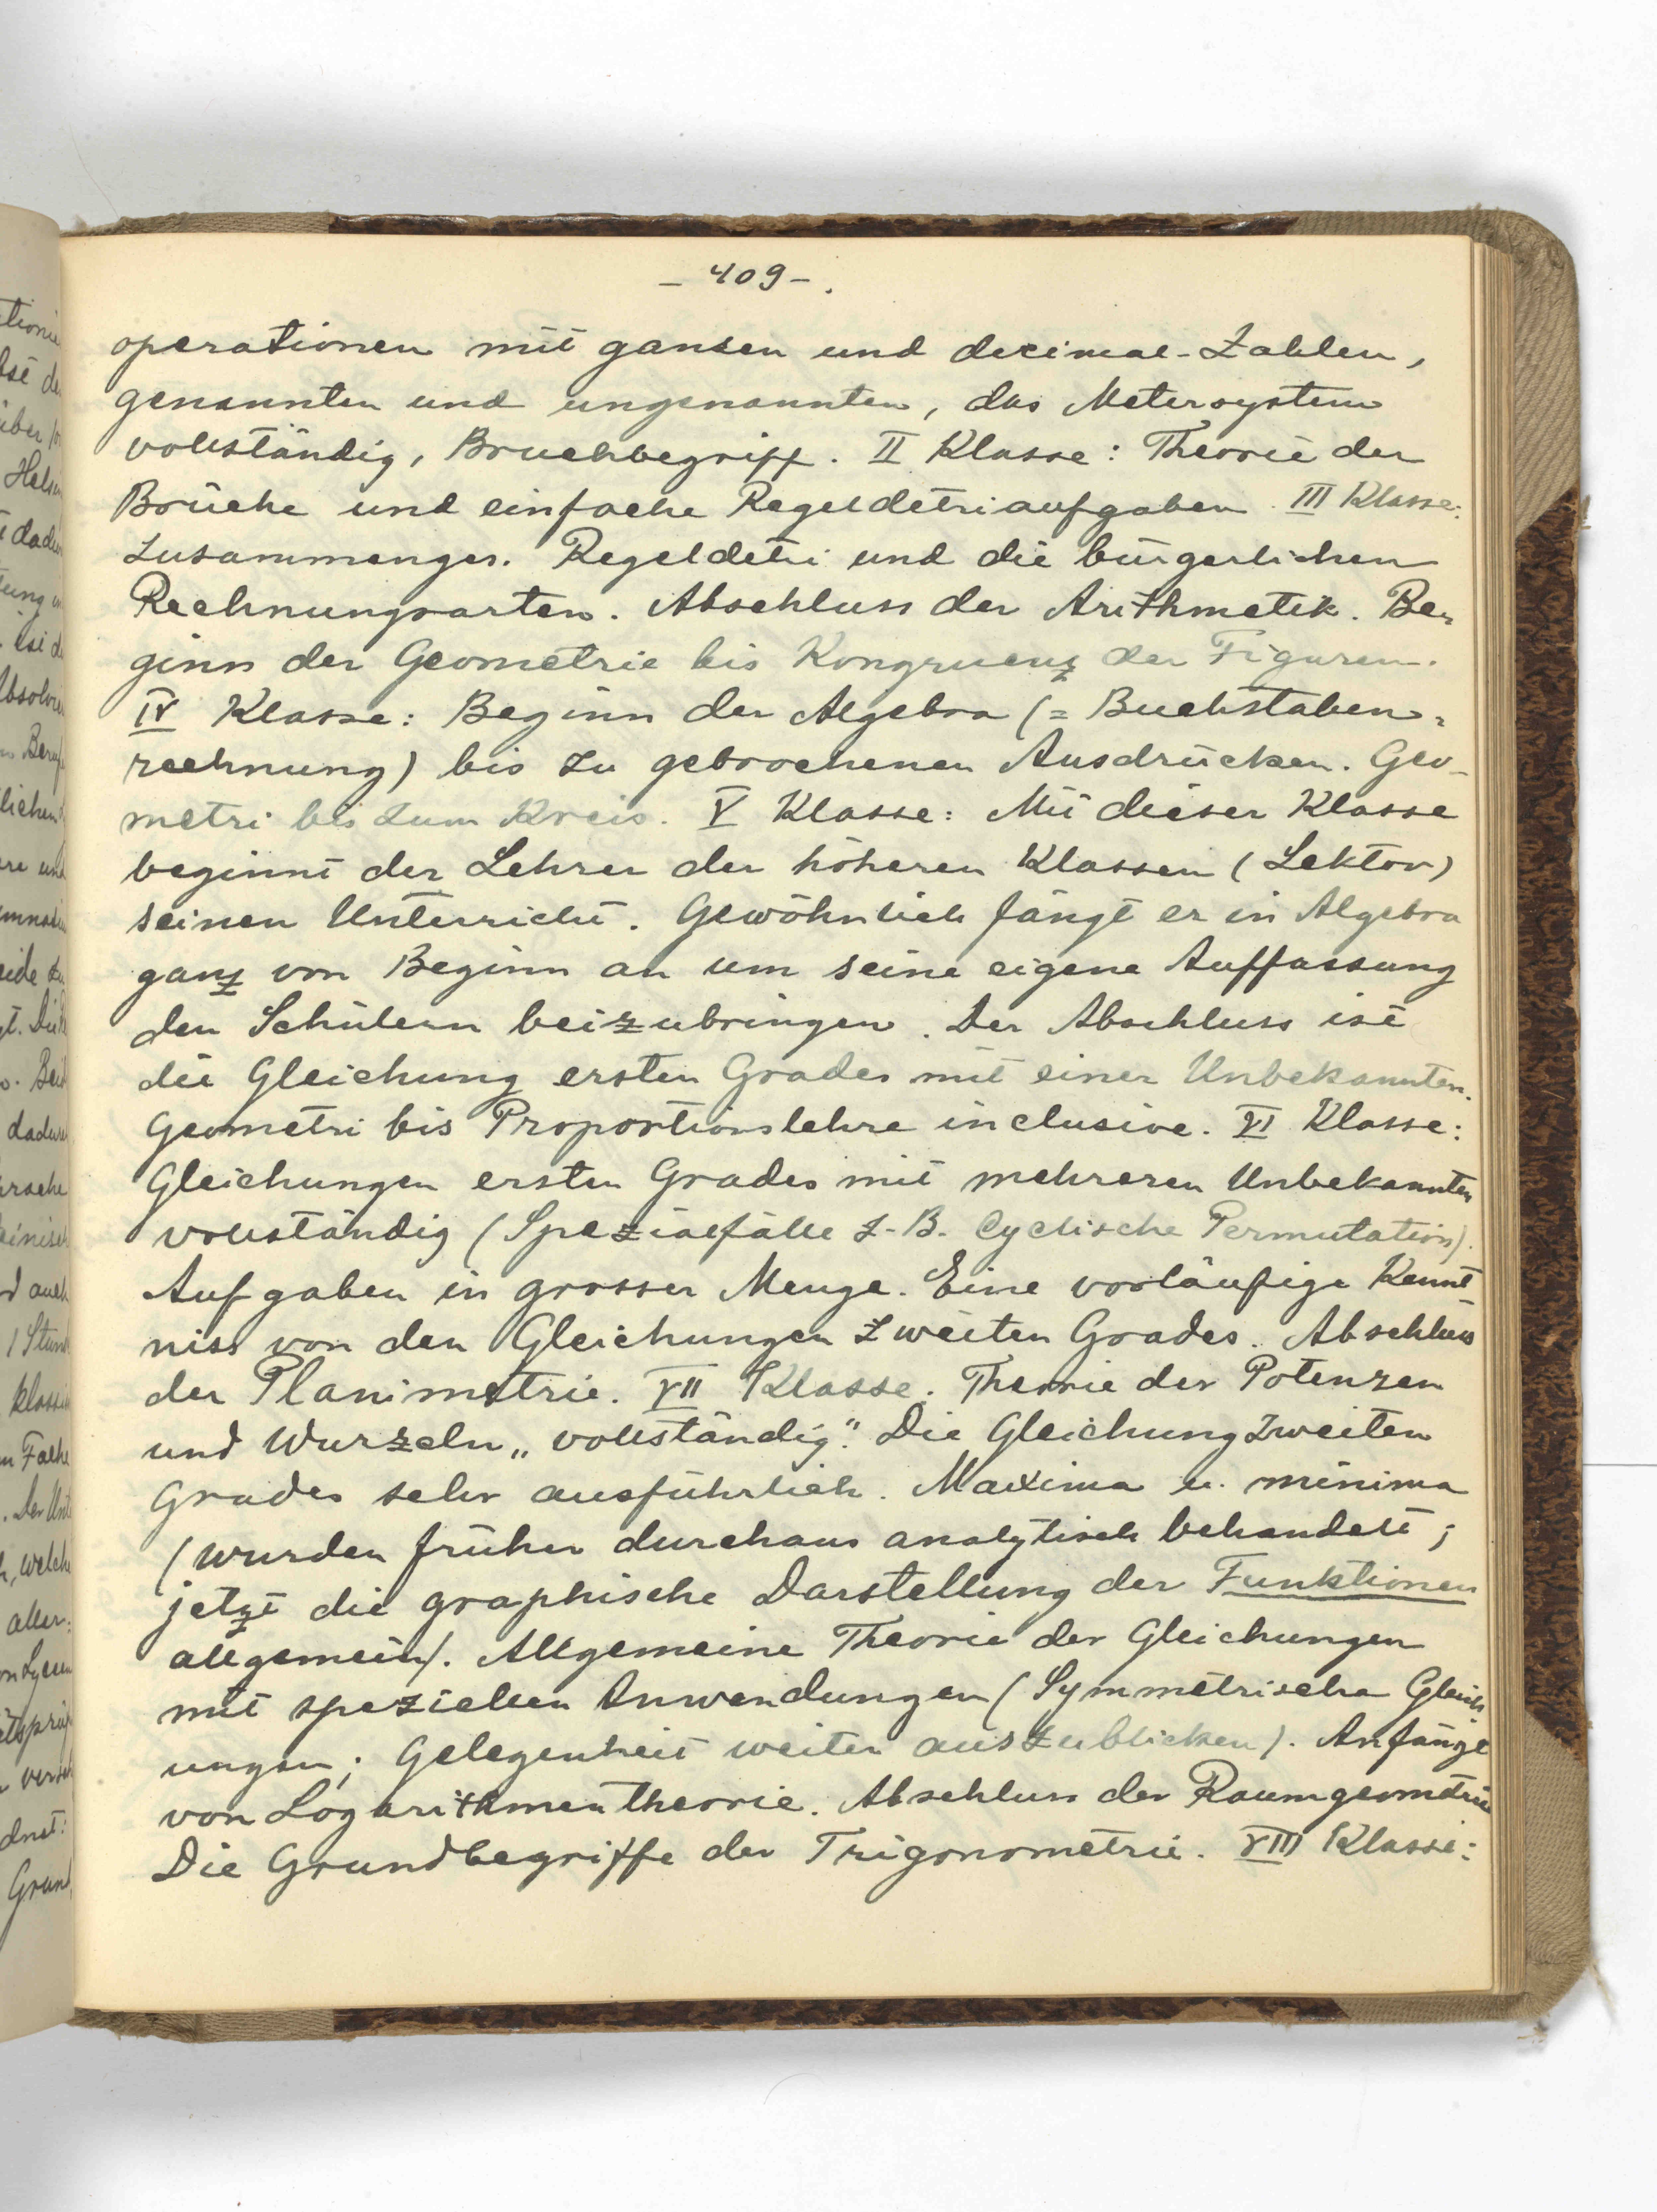 - 409 -.
operationen mit ganzen und decimal-Zahlen,
genannten und ungenannten, das Metersystem
vollständig, Bruchbegriff. II Klasse: Theorie der
Brüche und einfache Regeldetriaufgaben. III Klasse:
Zusammenges. Regeldetri und die bürgerlichen
Rechnungsarten. Abschluss der Arithmetik. Be-
ginn der Geometrie bis Kongruenz der Figuren.
IV Klasse: Beginn der Algebra (= Buchstaben-
rechnung) bis zu gebrochenen Ausdrücken. Geo-
metri bis zum Kreis. V Klasse: Mit dieser Klasse
beginnt der Lehrer der höheren Klassen (Lektor)
seinen Unterricht. Gewöhnlich fängt er in Algebra
ganz von Beginn an um seine eigene Auffassung
den Schülern beizubringen. Der Abschluss ist
die Gleichung ersten Grades mit einer Unbekannten.
Geometri bis Proportionslehre inclusive. VI Klasse:
Gleichungen ersten Grades mit mehreren Unbekannten
vollständig (Spezialfälle z-B. Cyclische Permutation).
Aufgaben in grosser Menge. Eine vorläufige Kennt
niss von den Gleichungen zweiten Grades. Abschluss
der Planimetrie. VII Klasse. Theorie der Potenzen
und Wurzeln „vollständig". Die Gleichung zweiten
Grades sehr ausführlich. Maxima u. minima
(wurden früher durchaus analytisch behandelt;
jetzt die graphische Darstellung der Funktionen
allgemein). Allgemeine Theorie der Gleichungen
mit speziellen Anwendungen (Symmetrische Gleich
ungen; Gelegenheit weiter auszublicken). Anfänge
von Logarithmentheorie. Abschluss der Raumgeometrie
Die Grundbegriffe der Trigonometrie. VIII Klasse: